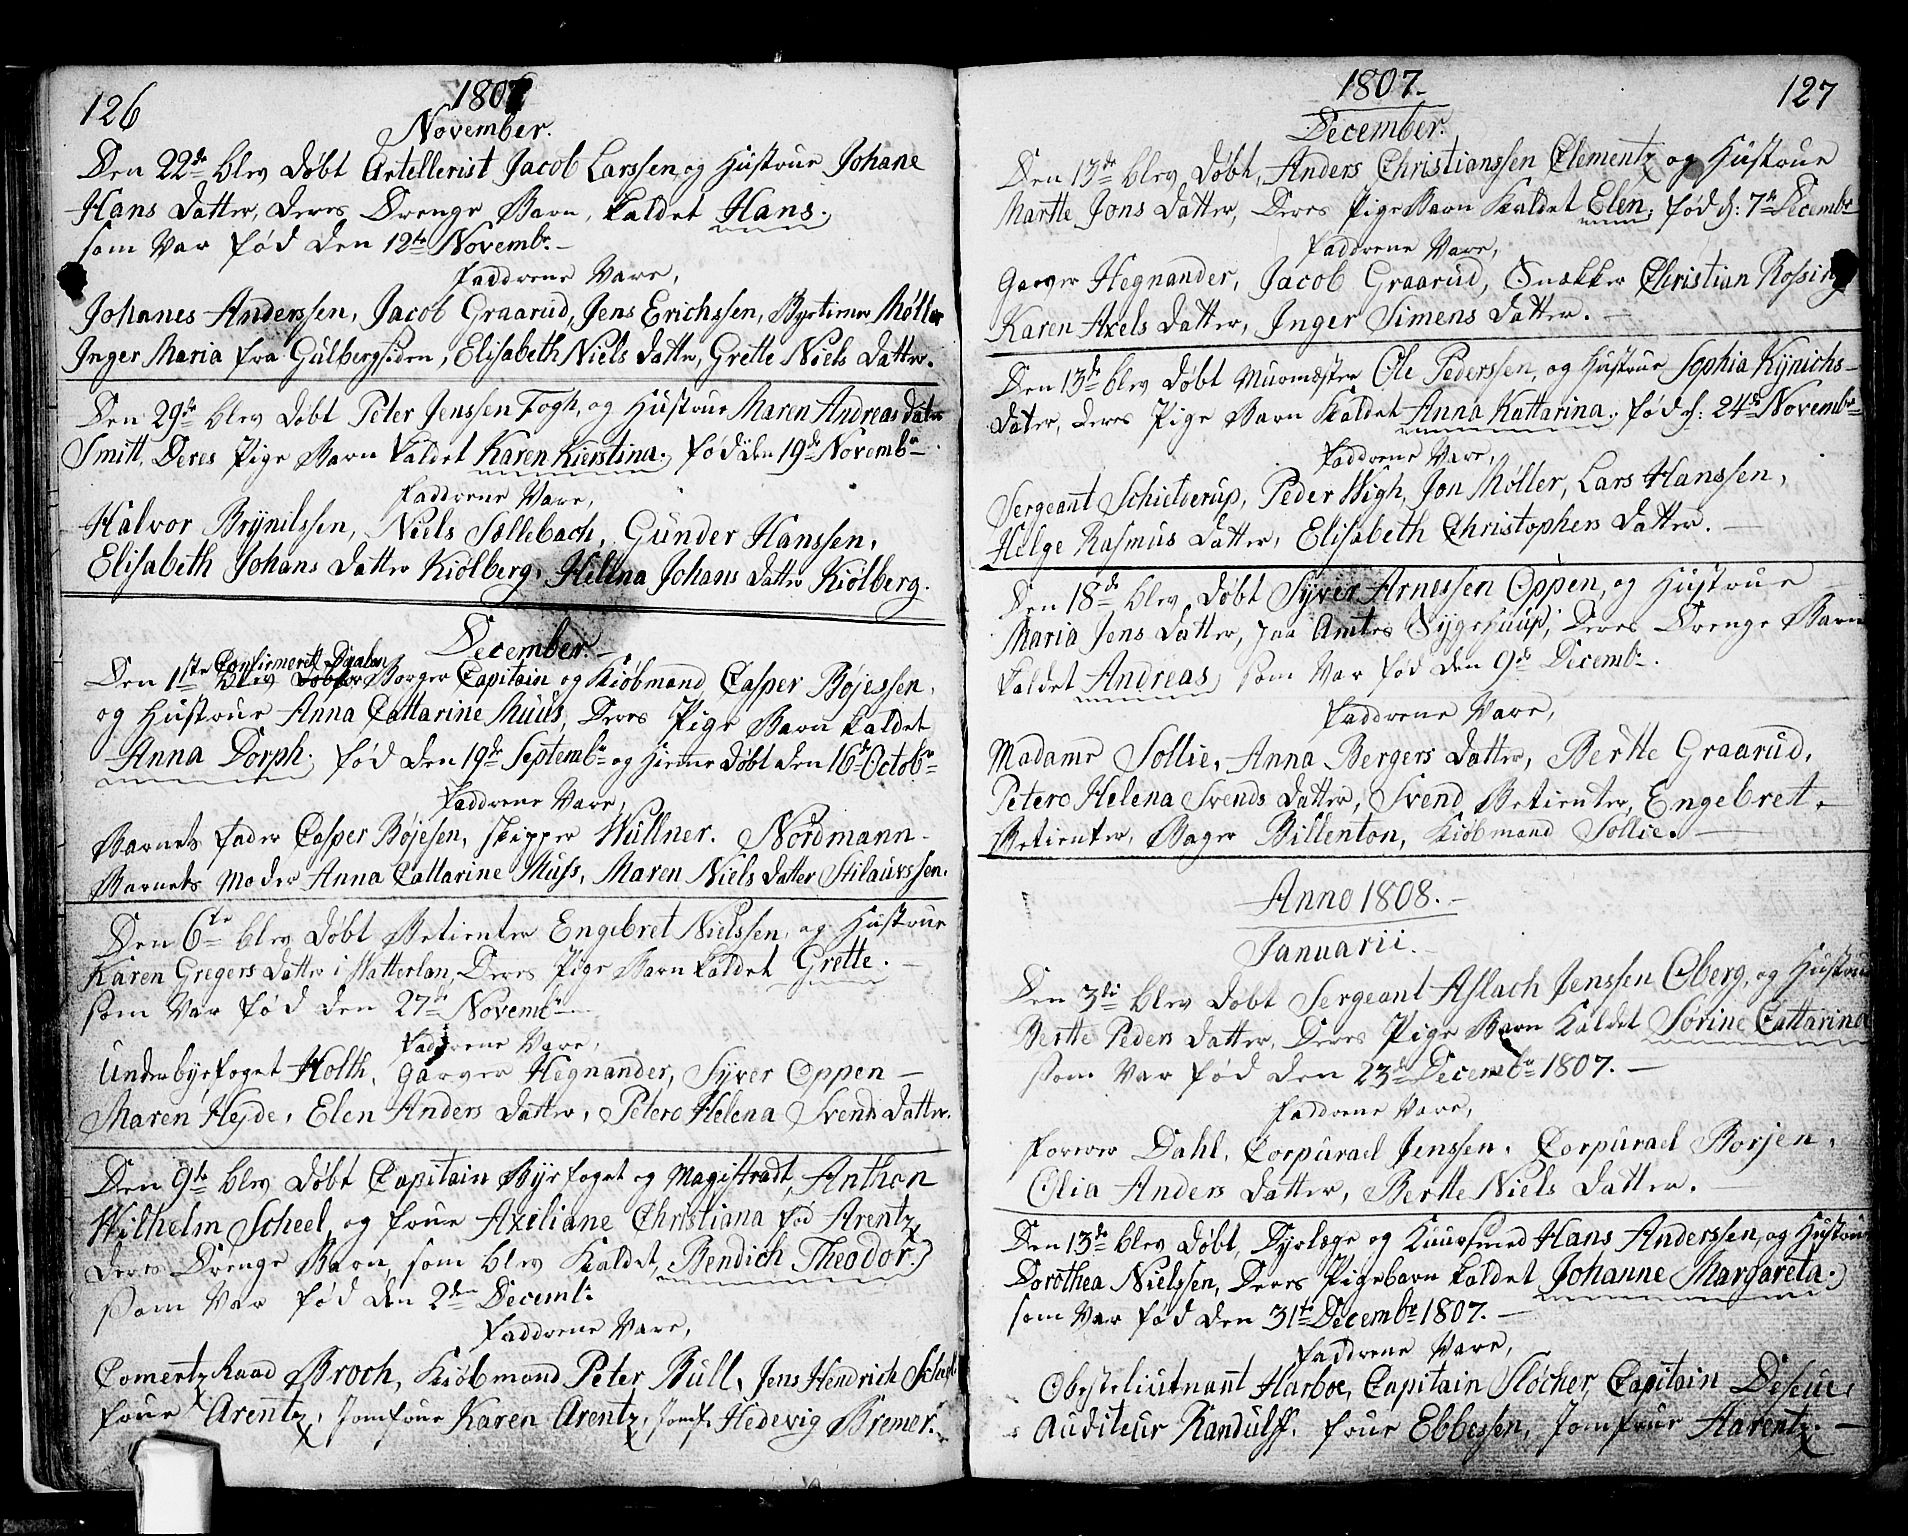 126
1807
November.
Den 22de blev Døbt Artellerist Jacob Larssen og Hustrue Johane
Hans Datter, Deres Drenge Barn, kaldet Hans.
som Var fød den 12te Novembr.
Faddrene Vare,
Johanes Anderssen, Jacob Graarud, Jens Erichssen, Møller
Inger Maria fra Gulbergsiden, Elisabeth Niels datter, Grette Niels Datter.
Den 29de blev Døbt Peter Jenssen Fogh, og Hustrue Maren Andreas dater
Smitt, Deres Pige Barn kaldet Karen Kierstina. fød den 19de Novembr
Faddrene Vare,
Halvor Brynilssen, Niels Sællebach, Gunder Hanssen,
Elisabeth Johans Datter Kiölberg, Helena Johans Datter Kiölberg.
December.
Confirmeret Daaben
Den 1ste blev Døbt for Borger Capitain og Kiøbmand Casper Bøjessen,
og Hustrue Anna Cattarine Muus, Deres Pige Barn kaldet
Anna Dorph. fød den 19de Septembr og Hieme døbt den 16de Octobr
Faddrene Vare,
Barnets fader Casper Bøjesen, skipper Wullner. Nordmann
Barnets Moder Anna Cattarine Muss, Maren Niels datter
Den 6te blev Døbt Betienter Engebret Nielssen, og Hustrue
Karen Gregers Datter i Watterlan, Deres Pige Barn kaldet Grette.
som Var fød den 27de Novembr
Faddrene Vare,
Underbyefoget Holth, Garver Hegnander, Syver Oppen
Maren Hejde, Elen Anders Datter, Petero Helena Svends Datter.
Den 9de blev Døbt Capitain Byefoget og Magistradt, Anthon
Wilhelm Scheel, og frue Axeliane Christiana fød Arentz
deres Drenge Barn, som blev Kaldet, Bendich Theodor.
som Var fød den 2den Decembr
Faddrene Vare,
Comertz Raad Broch, Kiøbmand Peter Bull, Jens Hendrich
frue Arentz, Jomfrue Karen Arentz, Jomf. Hedevig Bremer.
1807.
127
December.
Den 13de blev Døbt, Anders Christianssen Clementz og Hustrue
Martte Jons Datter, Deres Pige Barn Kaldet Elen, fød d: 7de Decembr
Faddrene Vare,
Garver Hegnander, Jacob Graarud, Snækker Christian Rossing
Karen Axels datter, Inger Simens Datter.
Den 13de blev Døbt Muurmæster Ole Pederssen, og Hustrue Sophia Kynichs-
Dater, deres Pige Barn Kaldet Anna Kattarina. fød d: 24de Novembr
Faddrene Vare,
Sergeant Schielderup, Peder Wigh, Jon Møller, Lars Hanssen,
Helge Rasmus Datter, Elisabeth Christophers Datter.
Den 18de blev Døbt Syver Arnessen Oppen, og Hustrue
Maria Jens Datter, paa Amtes Sygehuus, Deres Drenge Barn
kaldet Andreas, som Var fød den 9de Decembr.
Faddrene Vare,
Madame Sollie, Anna Bergers Datter, Bertte Graarud,
Petero Helena Svends Datter, Svend Betienter, Engebret
Betienter, Bager Billenton, Kiøbmand Sollie.
Anno 1808.
Januarii.
Den 3di blev Døbt Sergeant Aslach Jenssen Oberg, og Hustrue
Bertte Peders Datter, Deres Pige Barn Kaldet Sørine Cattarina
som Var fød den 23de Decembr 1807.
Faddrene Vare,
Forerer Dahl, Corpurael Jenssen, Corpurael Borjen,
Olia Anders Datter, Bertte Niels Datter.
Den 13de blev døbt, Dyrlæge og Kuursmed Hans Anderssen, og Hustrue
Dorothea Nielssen, Deres Pigebarn kaldet Johanne Margareta.
som Var fød den 31te Decembr 1807.
Faddrene Vare,
Obesteliutnant Harboe, Capitain Sløcher, Capitain Deseue,
Auditeur Randulff. frue Ebbessen, Jomfrue Aarentz.